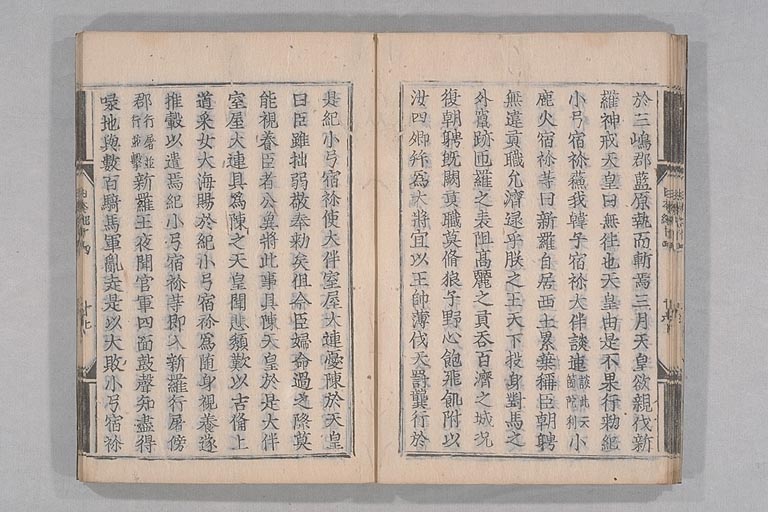 於三嶋郡藍原執而斬焉三月天皇欲親伐新
羅神戒天皇曰無往也天皇由是不果行勅紀
小弓宿祢蘇我韓子宿祢大伴談連談此云箇陀利小
鹿火宿祢等曰新羅自居西土累葉稱臣朝聘
無違貢職允濟逮乎朕之王天下投身對馬之
外竄跡匝羅之表阻高麗之貢吞百濟之城况
復朝聘既闕貢職莫脩狼子野心飽飛飢附以
汝四卿拜為大將宜以王師薄伐天罰龔行於
是紀小弓宿祢使大伴室屋大連憂陳於天皇
曰臣雖拙弱敬奉勅矣但今臣婦命過之際莫
能視養臣者公冀將此事具陳天皇於是大伴
室屋大連具為陳之天皇聞悲頽歎以吉備上
道采女大海賜於紀小弓宿祢為随身視養遂
推轂以遣焉紀小弓宿祢等即入新羅行屠傍
郡行屠並行並擊新羅王夜聞官軍四面鼓聲知盡得
喙地與數百騎馬軍亂走是以大敗小弓宿祢